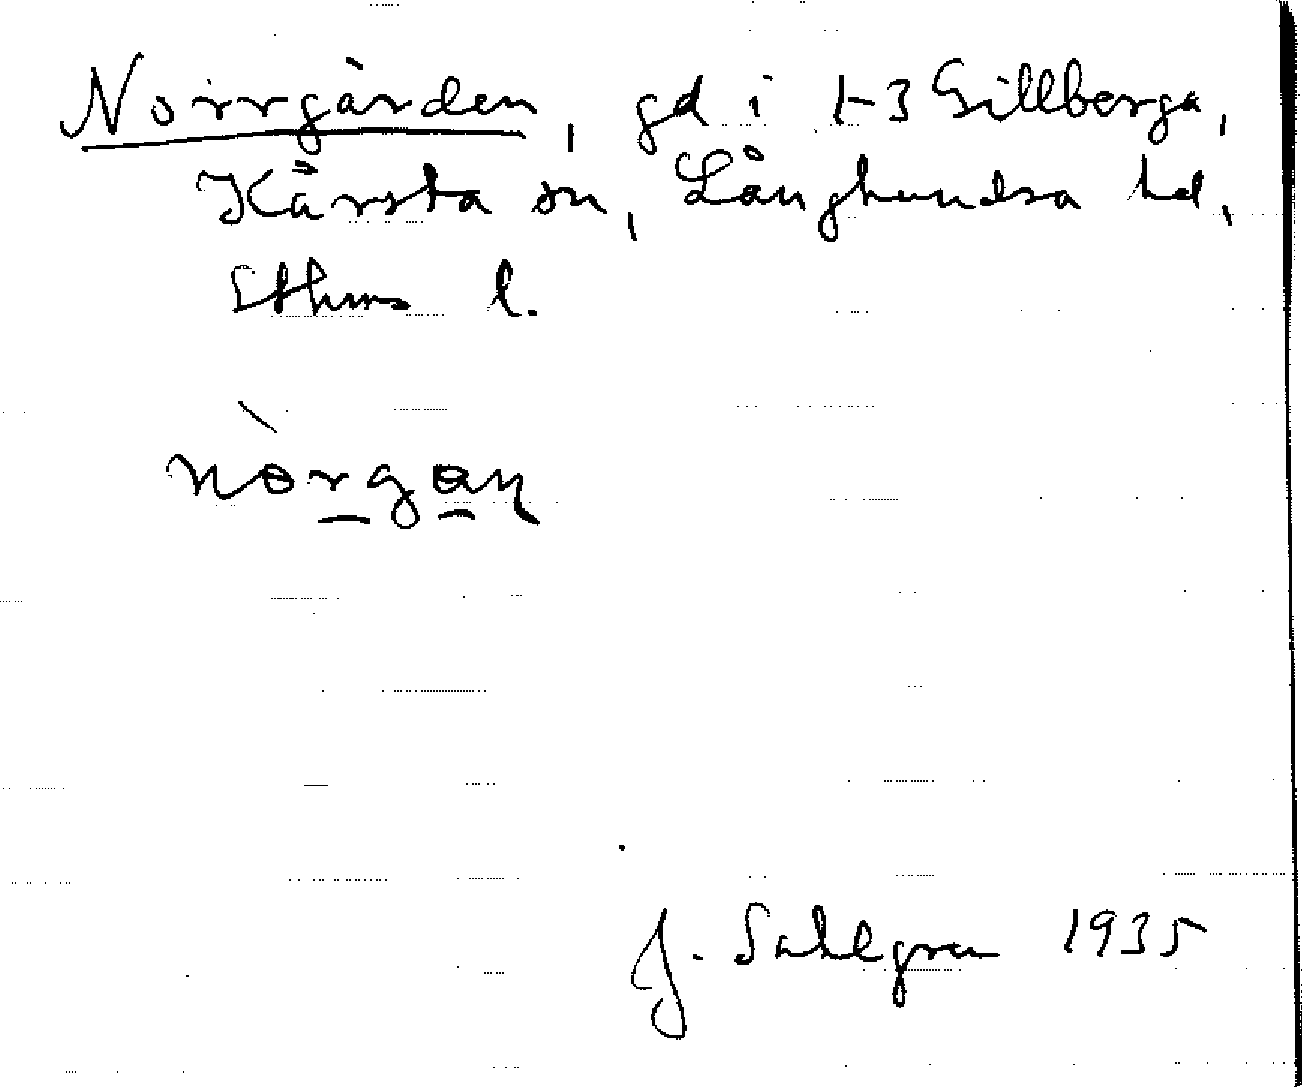 Norrgården, gd i 1-3 Gillberga,
Kårsta sn, Långhundra hd,
Sthms l.
nòrgan
J. Sahlgren 1935